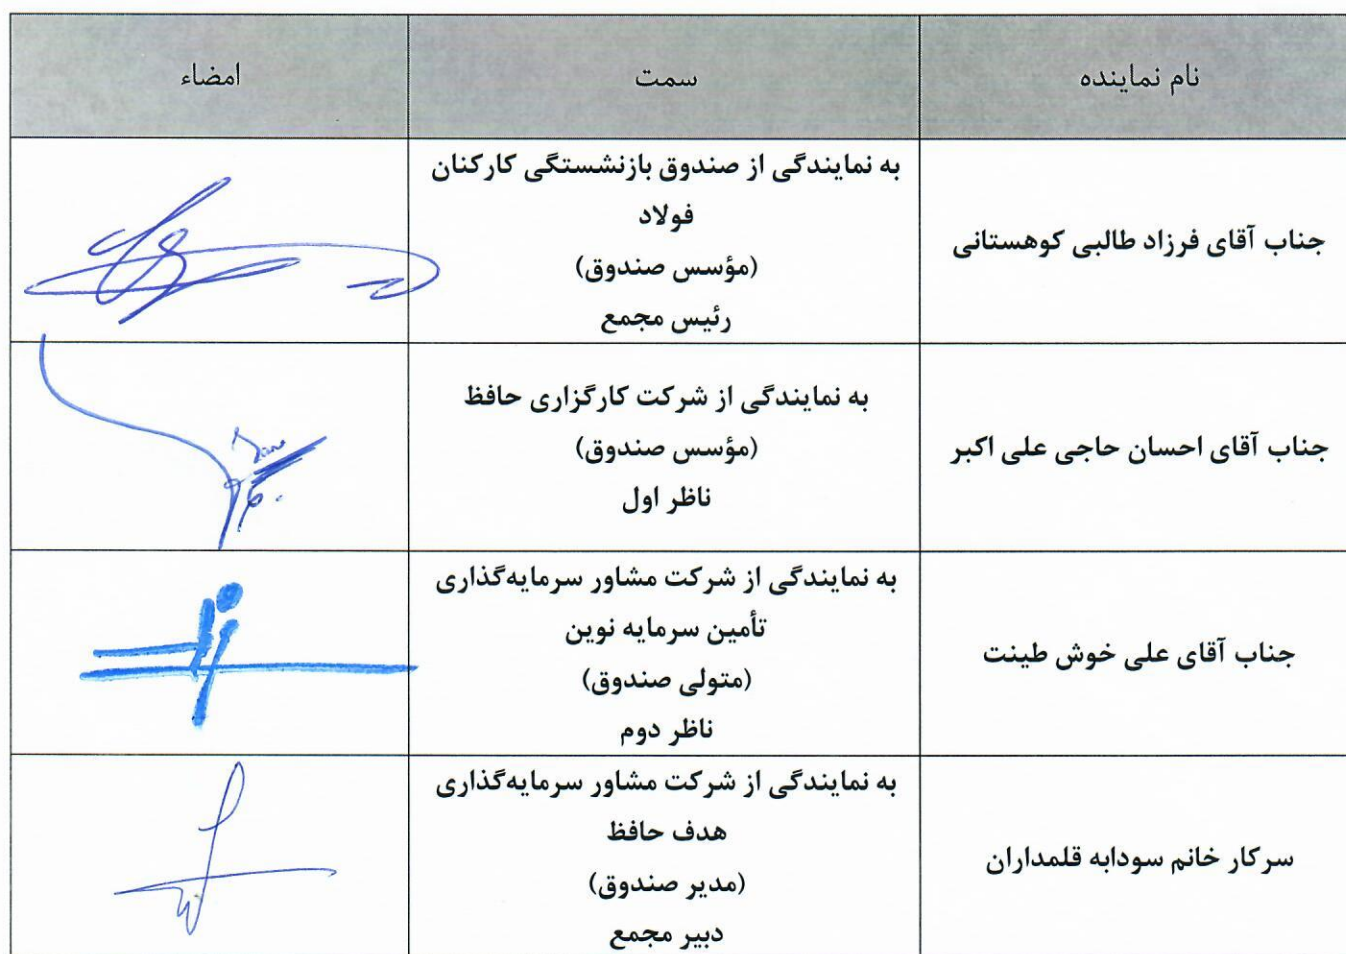 نام نماینده
سمت
امضاء
جناب آقای فرزاد طالبی کوهستانی
به نمایندگی از صندوق بازنشستگی کارکنان
فولاد
(مؤسس صندوق)
رئیس مجمع
جناب آقای احسان حاجی علی اکبر
به نمایندگی از شرکت کارگزاری حافظ
(مؤسس صندوق)
ناظر اول
جناب آقای علی خوش طینت
به نمایندگی از شرکت مشاور سرمایه‌گذاری
تأمین سرمایه نوین
(متولی صندوق)
ناظر دوم
سرکار خانم سودابه قلمداران
به نمایندگی از شرکت مشاور سرمایه‌گذاری
هدف حافظ
(مدیر صندوق)
دبیر مجمع